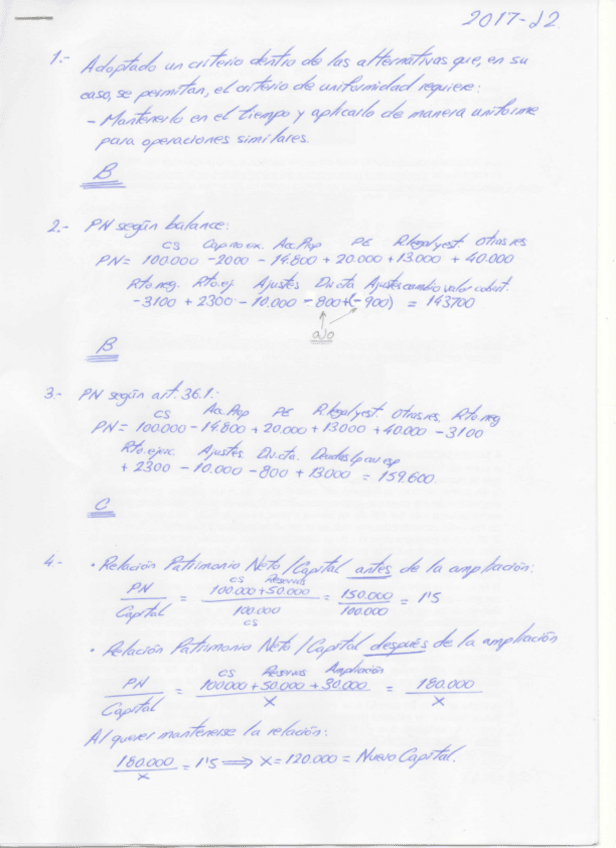 2017-J2
1.- Adoptado un criterio dentro de las alternativas que, en su
caso, se permitan, el criterio de uniformidad requiere:
- Mantenerlo en el tiempo y aplicarlo de manera uniforme
para operaciones similares.
B
2.- PN según balance:
CS Cap no ex. Acc. Prop PE R legal y est Otras res
PN = 100.000 - 2000 - 14.800 + 20.000 + 13.000 + 40.000
Rto neg. Rto. ej. Ajustes Div cta Ajustes cambio valor cobert.
- 3100 + 2300 - 10.000 - 800 + (- 900) = 143.700
B
3.- PN según art. 36.1.-
CS Acc. Prop PE R legal y est Otras res. Rto neg
PN = 100.000 - 14.800 + 20.000 + 13.000 + 40.000 - 3100
Rto. ejerc. Ajustes Div. cta. Deudas lp
+ 2300 - 10.000 - 800 + 13.000 = 159.600
C
4.- • Relación Patrimonio Neto/Capital antes de la ampliación:
CS Reservas
PN / Capital = 100.000 + 50.000 / 100.000 = 150.000 / 100.000 = 1'5
CS
• Relación Patrimonio Neto/Capital después de la ampliación
CS Reservas Ampliación
PN / Capital = 100.000 + 50.000 + 30.000 / X = 180.000 / X
Al querer mantenerse la relación:
180.000 / X = 1'5 ⟹ X = 120.000 = Nuevo Capital.